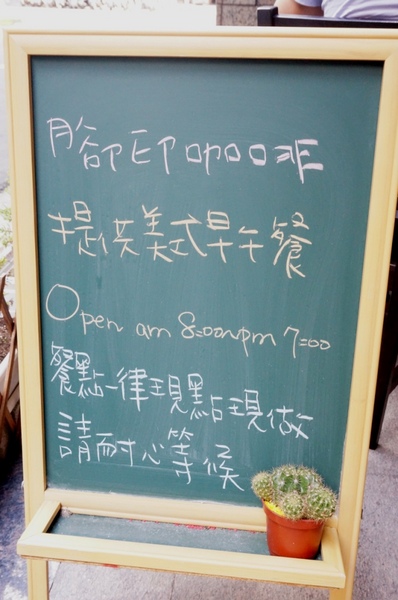 腳印咖啡
提供美式早午餐
Open am 8:00~pm 7:00
餐點一律現點現做
請耐心等候